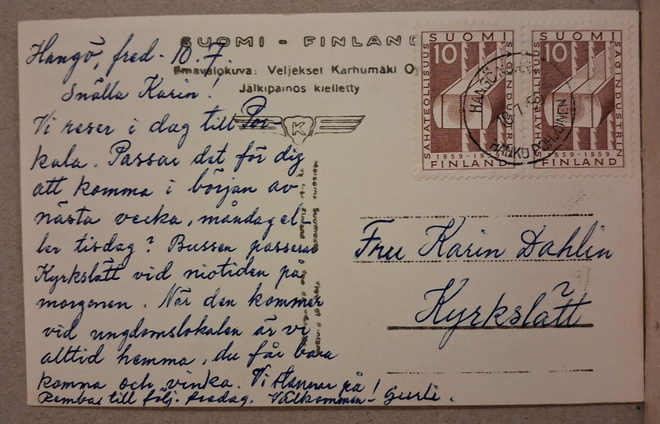 SUOMI - FINLAND
Ilmavalokuva: Veljekset Karhumäki Oy
Jälkipainos kielletty
K
Hangö, fred. 10.7.
Snälla Karin!
Vi reser i dag till Por-
kala. Passar det för dig
att komma i början av
nästa vecka, måndag el-
ler tisdag? Bussen passerar
Kyrkslätt vid niotiden på
morgonen. När den kommer
vid ungdomslokalen är vi
alltid hemma, du får bara
komma och vinka. Vi stannar på
till följ. tisdag. Välkommen! Gurli.
SUOMI
10
SAHATEOLLISUUS
SÅGINDUSTRIN
1859-1959
FINLAND
SUOMI
10
SAHATEOLLISUUS
SÅGINDUSTRIN
1859-1959
FINLAND
HANKO POHJOINEN
Fru Karin Dahlin
Kyrkslätt